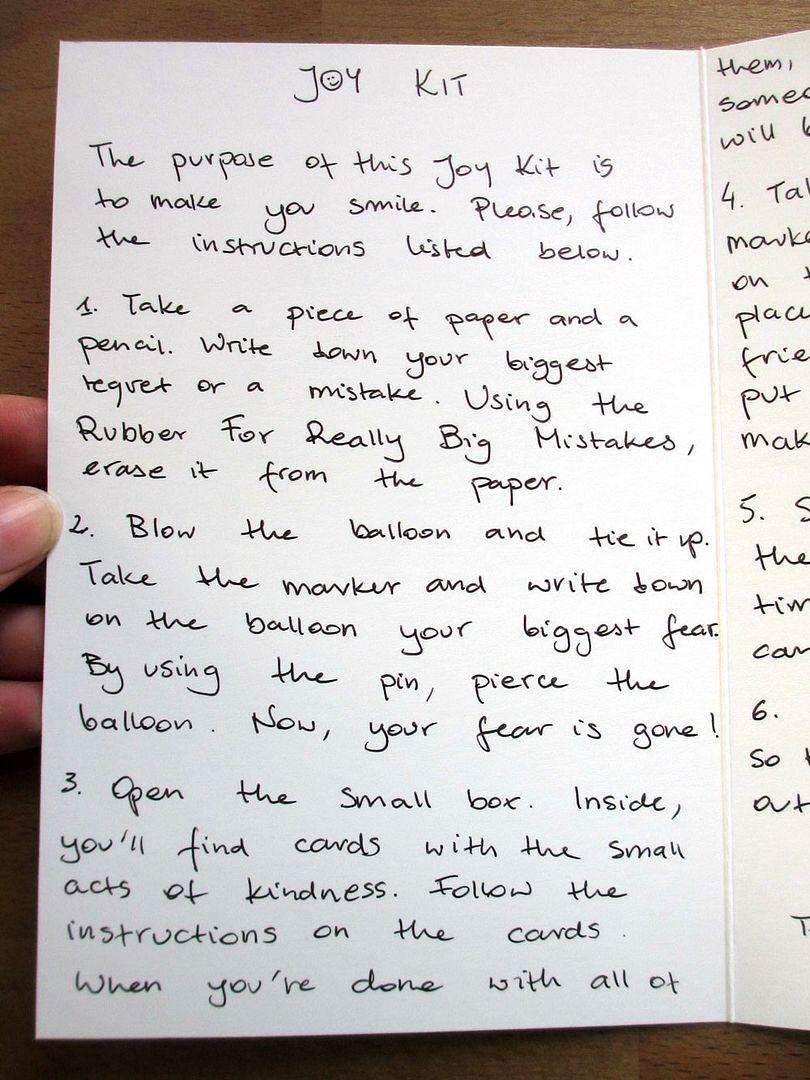 JOY KIT
The purpose of this Joy Kit is
to make you smile. Please, follow
the instructions listed below.
1. Take a piece of paper and a
pencil. Write down your biggest
regret or a mistake. Using the
Rubber For Really Big Mistakes,
erase it from the paper.
2. Blow the balloon and tie it up.
Take the marker and write down
on the balloon your biggest fear.
By using the pin, pierce the
balloon. Now, your fear is gone!
3. Open the small box. Inside,
you'll find cards with the small
acts of kindness. Follow the
instructions on the cards.
When you're done with all of
them,
will
4.
on
put
5.
the
6.
So